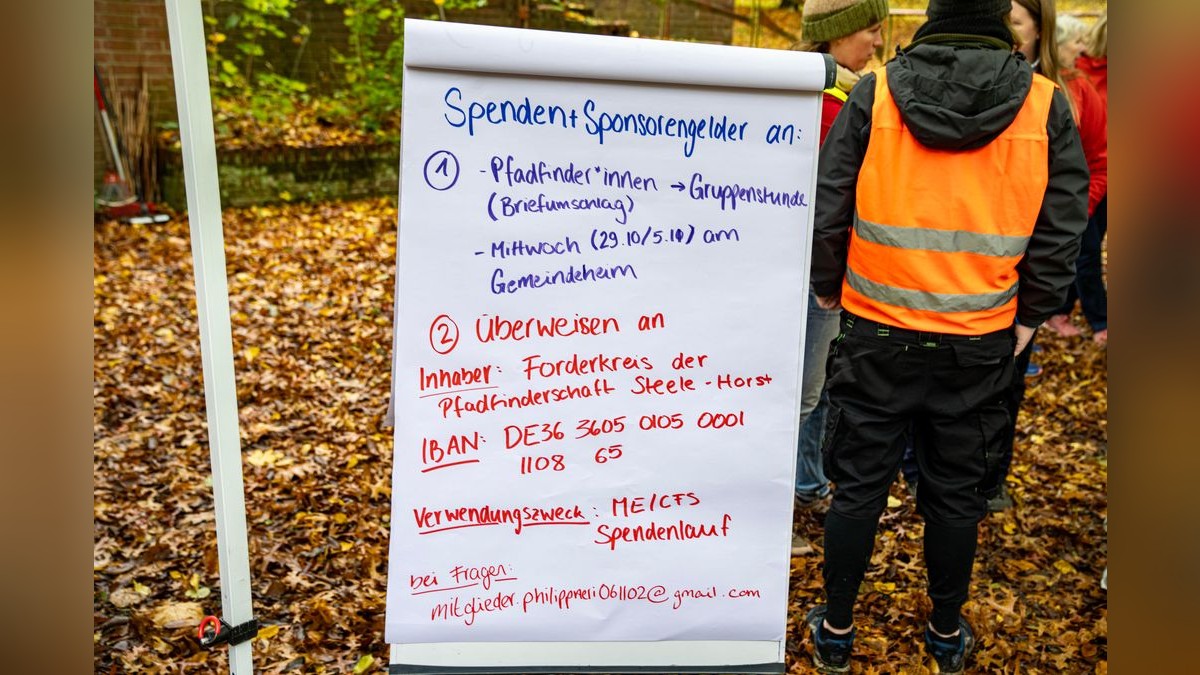 Spenden+Sponsorengelder an:
1 - Pfadfinder*innen → Gruppenstunde
(Briefumschlag)
- Mittwoch (29.10/5.10) am
Gemeindeheim
2 Überweisen an
Inhaber: Forderkreis der
Pfadfinderschaft Steele-Horst
IBAN: DE36 3605 0105 0001
1108 65
Verwendungszweck: ME/CFS
Spendenlauf
bei Fragen:
mitglieder.philippneri061102@gmail.com